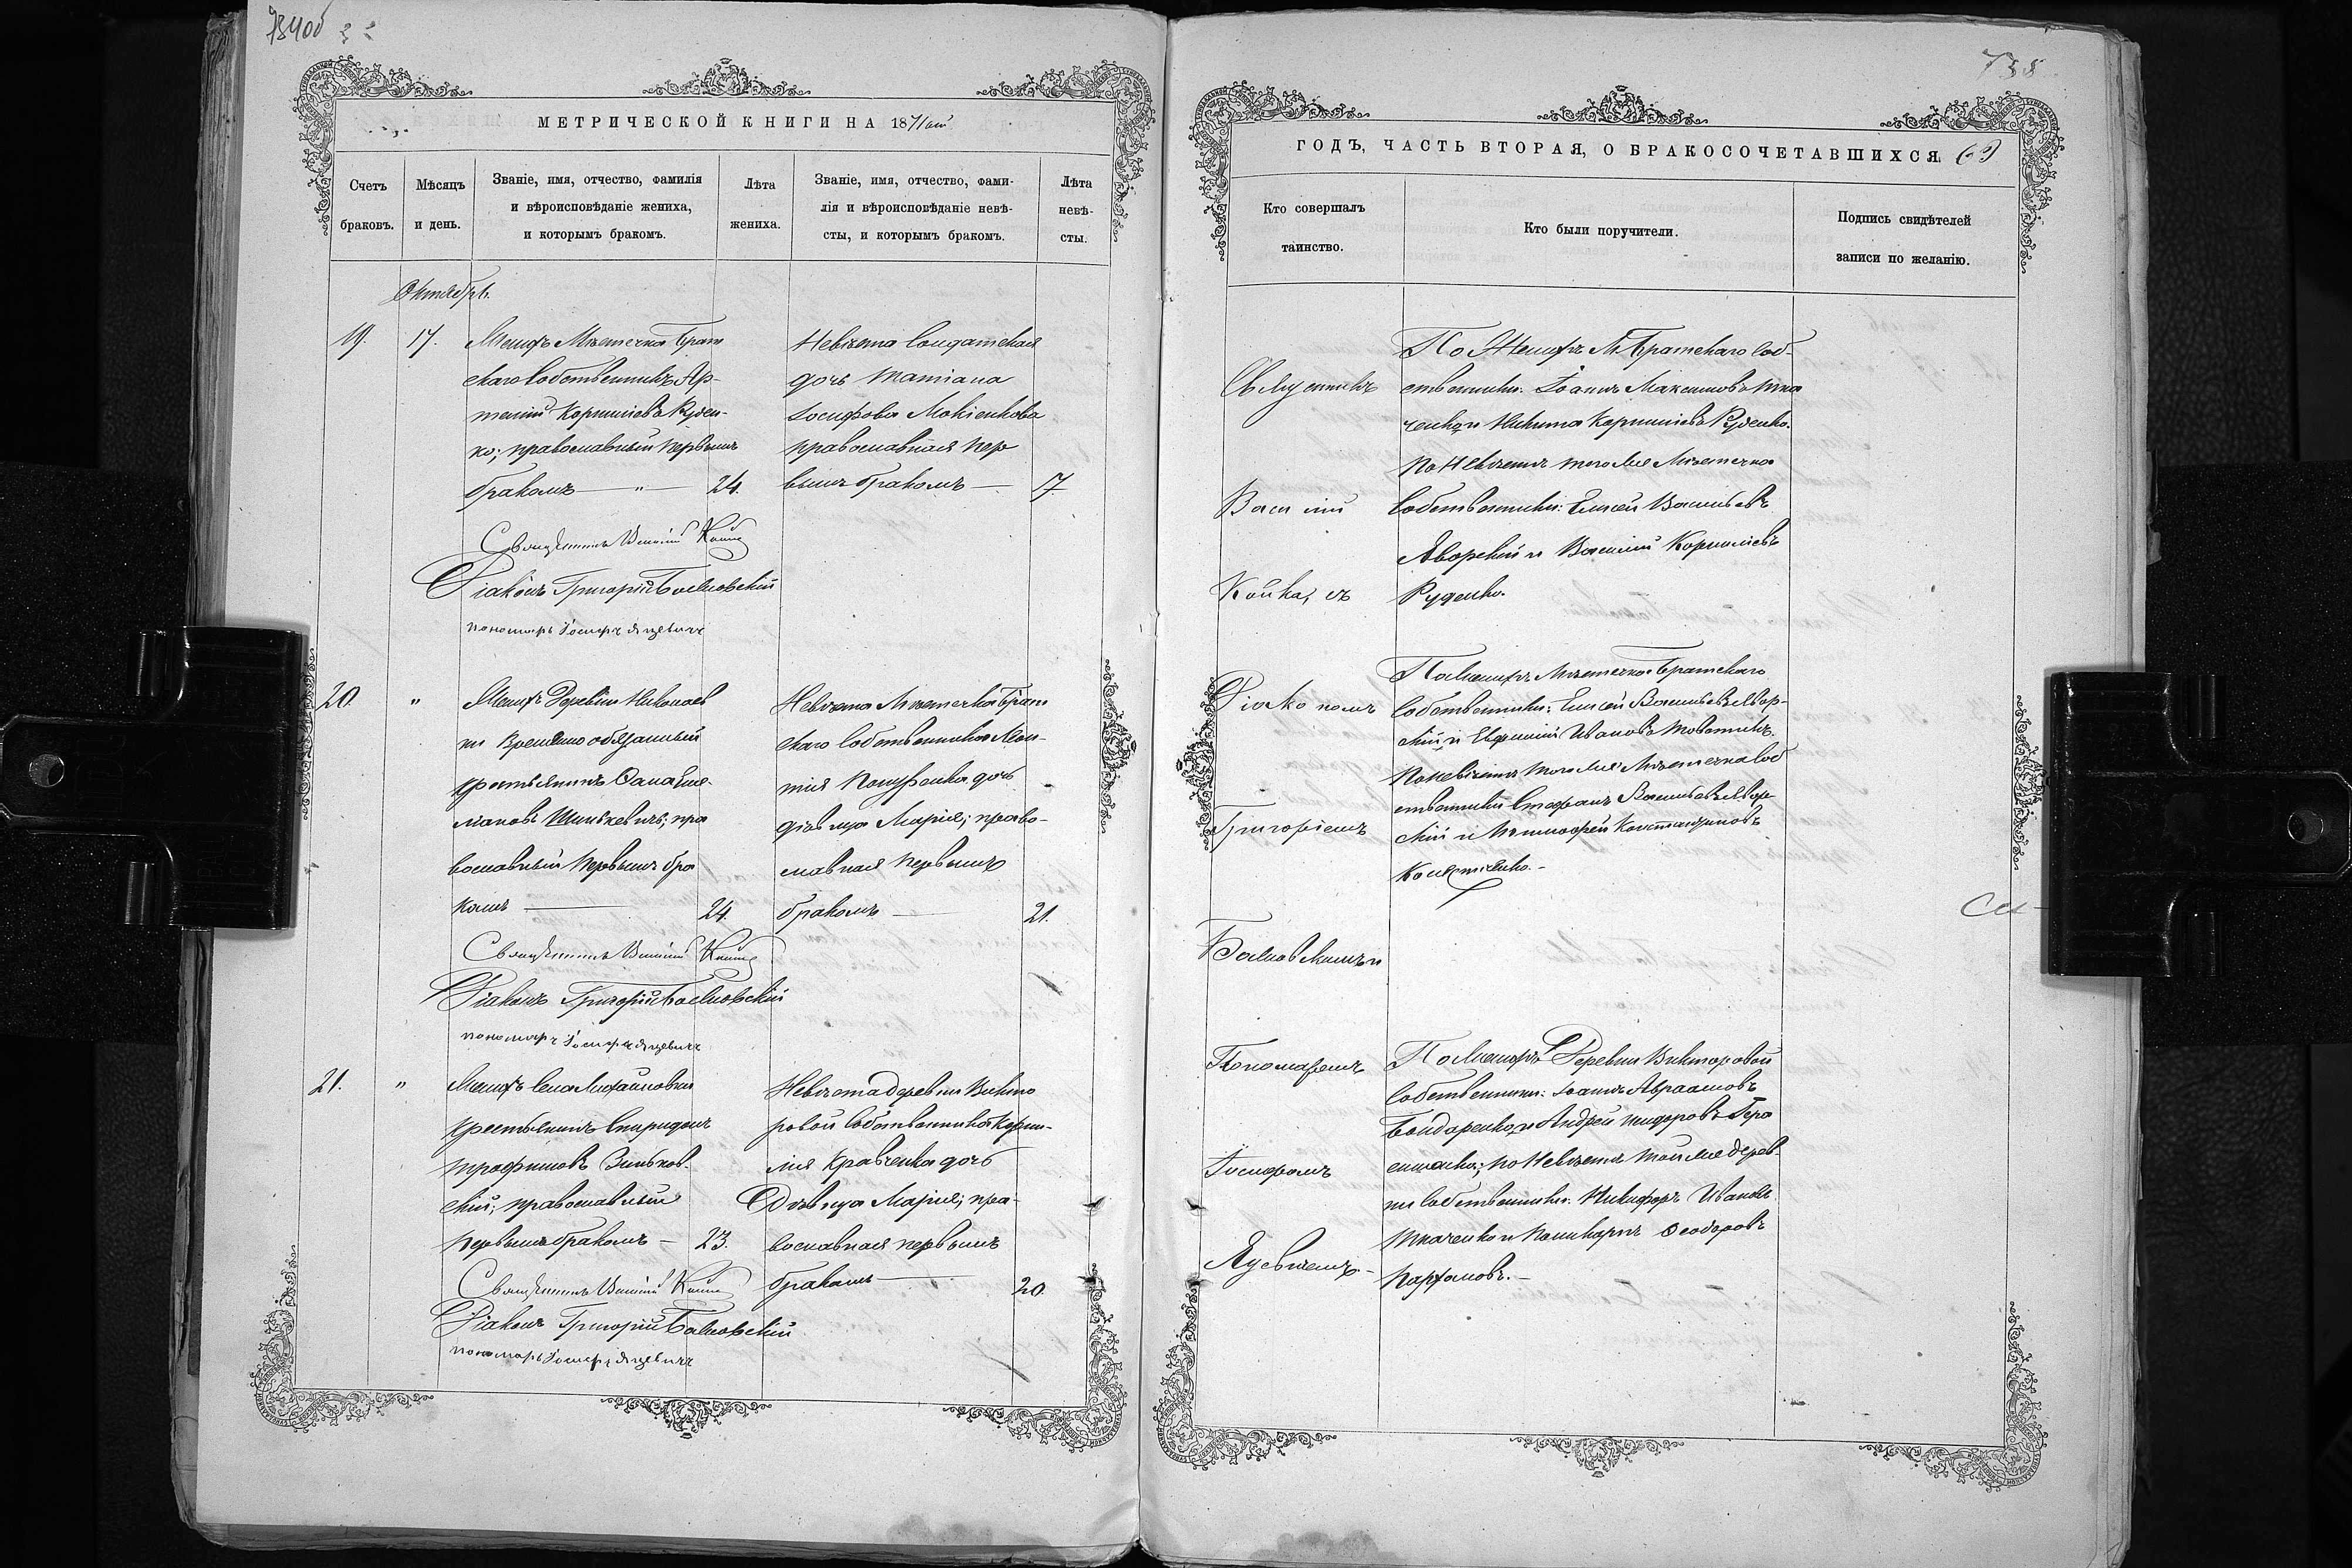 738
МЕТРИЧЕСКОЙ КНИГИ НА 1871ый
Счетъ браковъ.
Мѣсяцъ и день.
Званіе, имя, отчество, фамилія
и вѣроисповѣданіе жениха,
и которымъ бракомъ.
Лѣта жениха.
Званіе, имя, отчество, фами-
лія и вѣроисповѣданіе невѣ-
сты, и которымъ бракомъ.
Лѣта невѣ-
сты.
Октябрь.
19. 17.
Женихъ Мѣстечка Брат
скаго Собственникъ Ар-
темій Корниліевъ Руден-
ко; православный первымъ
бракомъ — " — 24.
Невѣста Солдатская
дочь Татіана
Іосифова Мокіенкова
православная пер
вымъ бракомъ — 17
Священникъ Василій
Діаконъ Григорій
пономарь Іосифъ Яцевичъ
20. "
Женихъ Деревни Николаев
ки Временно обязанный
крестьянинъ
православный первымъ бра
комъ — 24.
Невѣста Мѣстечка Брат
скаго Собственника Леон-
тія дочь
дѣвица Марія; право-
славная первымъ
бракомъ — 21.
Священникъ Василій
Діаконъ Григорій
пономарь Іосифъ Яцевичъ
21. "
Женихъ Села
крестьянинъ Спиридонъ
Трофимовъ Зиньков-
скій; православный
первымъ бракомъ — 23.
Невѣста деревни Викто
ровой Собственника Корни-
лія Кравченка дочь
Дѣвица Марія; пра-
вославная первымъ
бракомъ — 20.
Священникъ Василій
Діаконъ Григорій
пономарь Іосифъ Яцевичъ
738
ГОДЪ, ЧАСТЬ ВТОРАЯ, О БРАКОСОЧЕТАВШИХСЯ. 69
Кто совершалъ
таинство.
Кто были поручители.
Подпись свидѣтелей
записи по желанію.
Священникъ
Василій
съ
Діакономъ
Григоріемъ
Пономаремъ
Іосифомъ
Яцевичемъ.
По Женихѣ М. Братскаго Соб-
ственники: Іоаннъ Максимовъ Тка
ченко и Никита Корниліевъ Руденко.
По Невѣстѣ того же Мѣстечка
Собственники: Елисей Васильевъ
Яворскій и Василій Корниліевъ
Руденко.
По Женихѣ Мѣстечка Братскаго
Собственники: Елисей Васильевъ Явор-
скій и Евфимій Ивановъ
По невѣстѣ того же Мѣстечка Соб
ственники Стефанъ Васильевъ Явор
скій и Тимофей Константиновъ
По Женихѣ Деревни Викторовой
Собственники: Іоаннъ Авраамовъ
Бондаренко и Андрей
по Невѣстѣ той же дерев-
ни Собственники: Никифоръ Ивановъ
Ткаченко и Поликарпъ Ѳеодоровъ